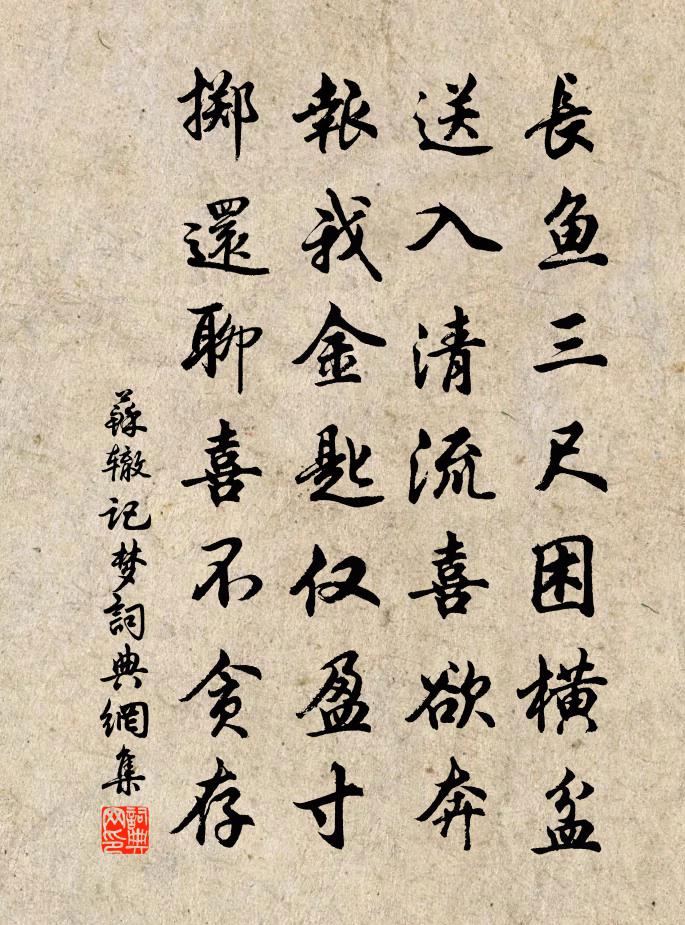 長鱼三尺困横盆
送入清流喜欲奔
報我金匙仅盈寸
掷還聊喜不贪存
蘇辙记梦詞典網集
詞典网印